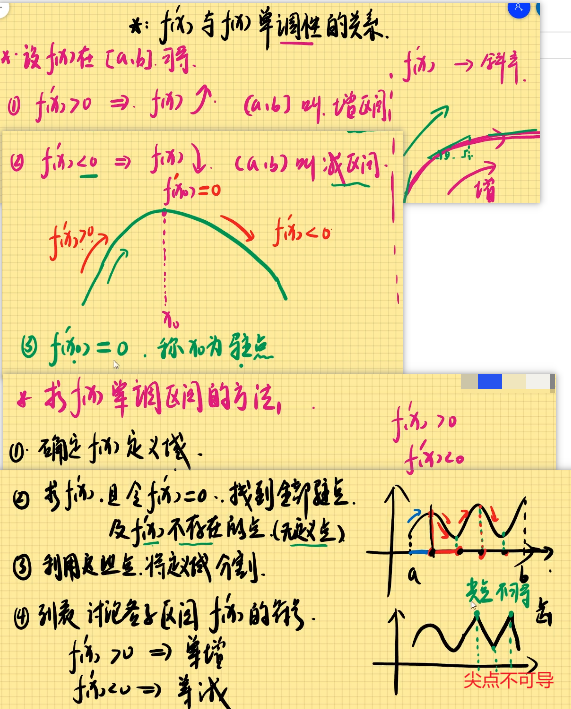 *: f'(x) 与 f(x) 单调性的关系.
*: 设 f(x) 在 [a,b] 可导.
f'(x) → 斜率
① f'(x)>0 ⇒ f(x) ↗ (a,b) 叫 增区间;
增
② f'(x)<0 ⇒ f(x) ↓. (a,b) 叫 减区间.
f'(x₀)=0
f'(x)>0
f'(x)<0
x₀
③ f'(x₀)=0. 称 x₀ 为驻点
* 求 f(x) 单调区间的方法,
f'(x)>0
f'(x)<0
①. 确定 f(x) 定义域.
② 求 f'(x), 且令 f'(x)=0. 找到全部驻点.
及 f'(x) 不存在的点. (无定义点)
③ 利用这些点. 将定义域分割.
a b
尖点不可导
④ 列表 讨论各子区间 f'(x) 的符号.
f'(x)>0 ⇒ 单增
f'(x)<0 ⇒ 单减
尖点不可导